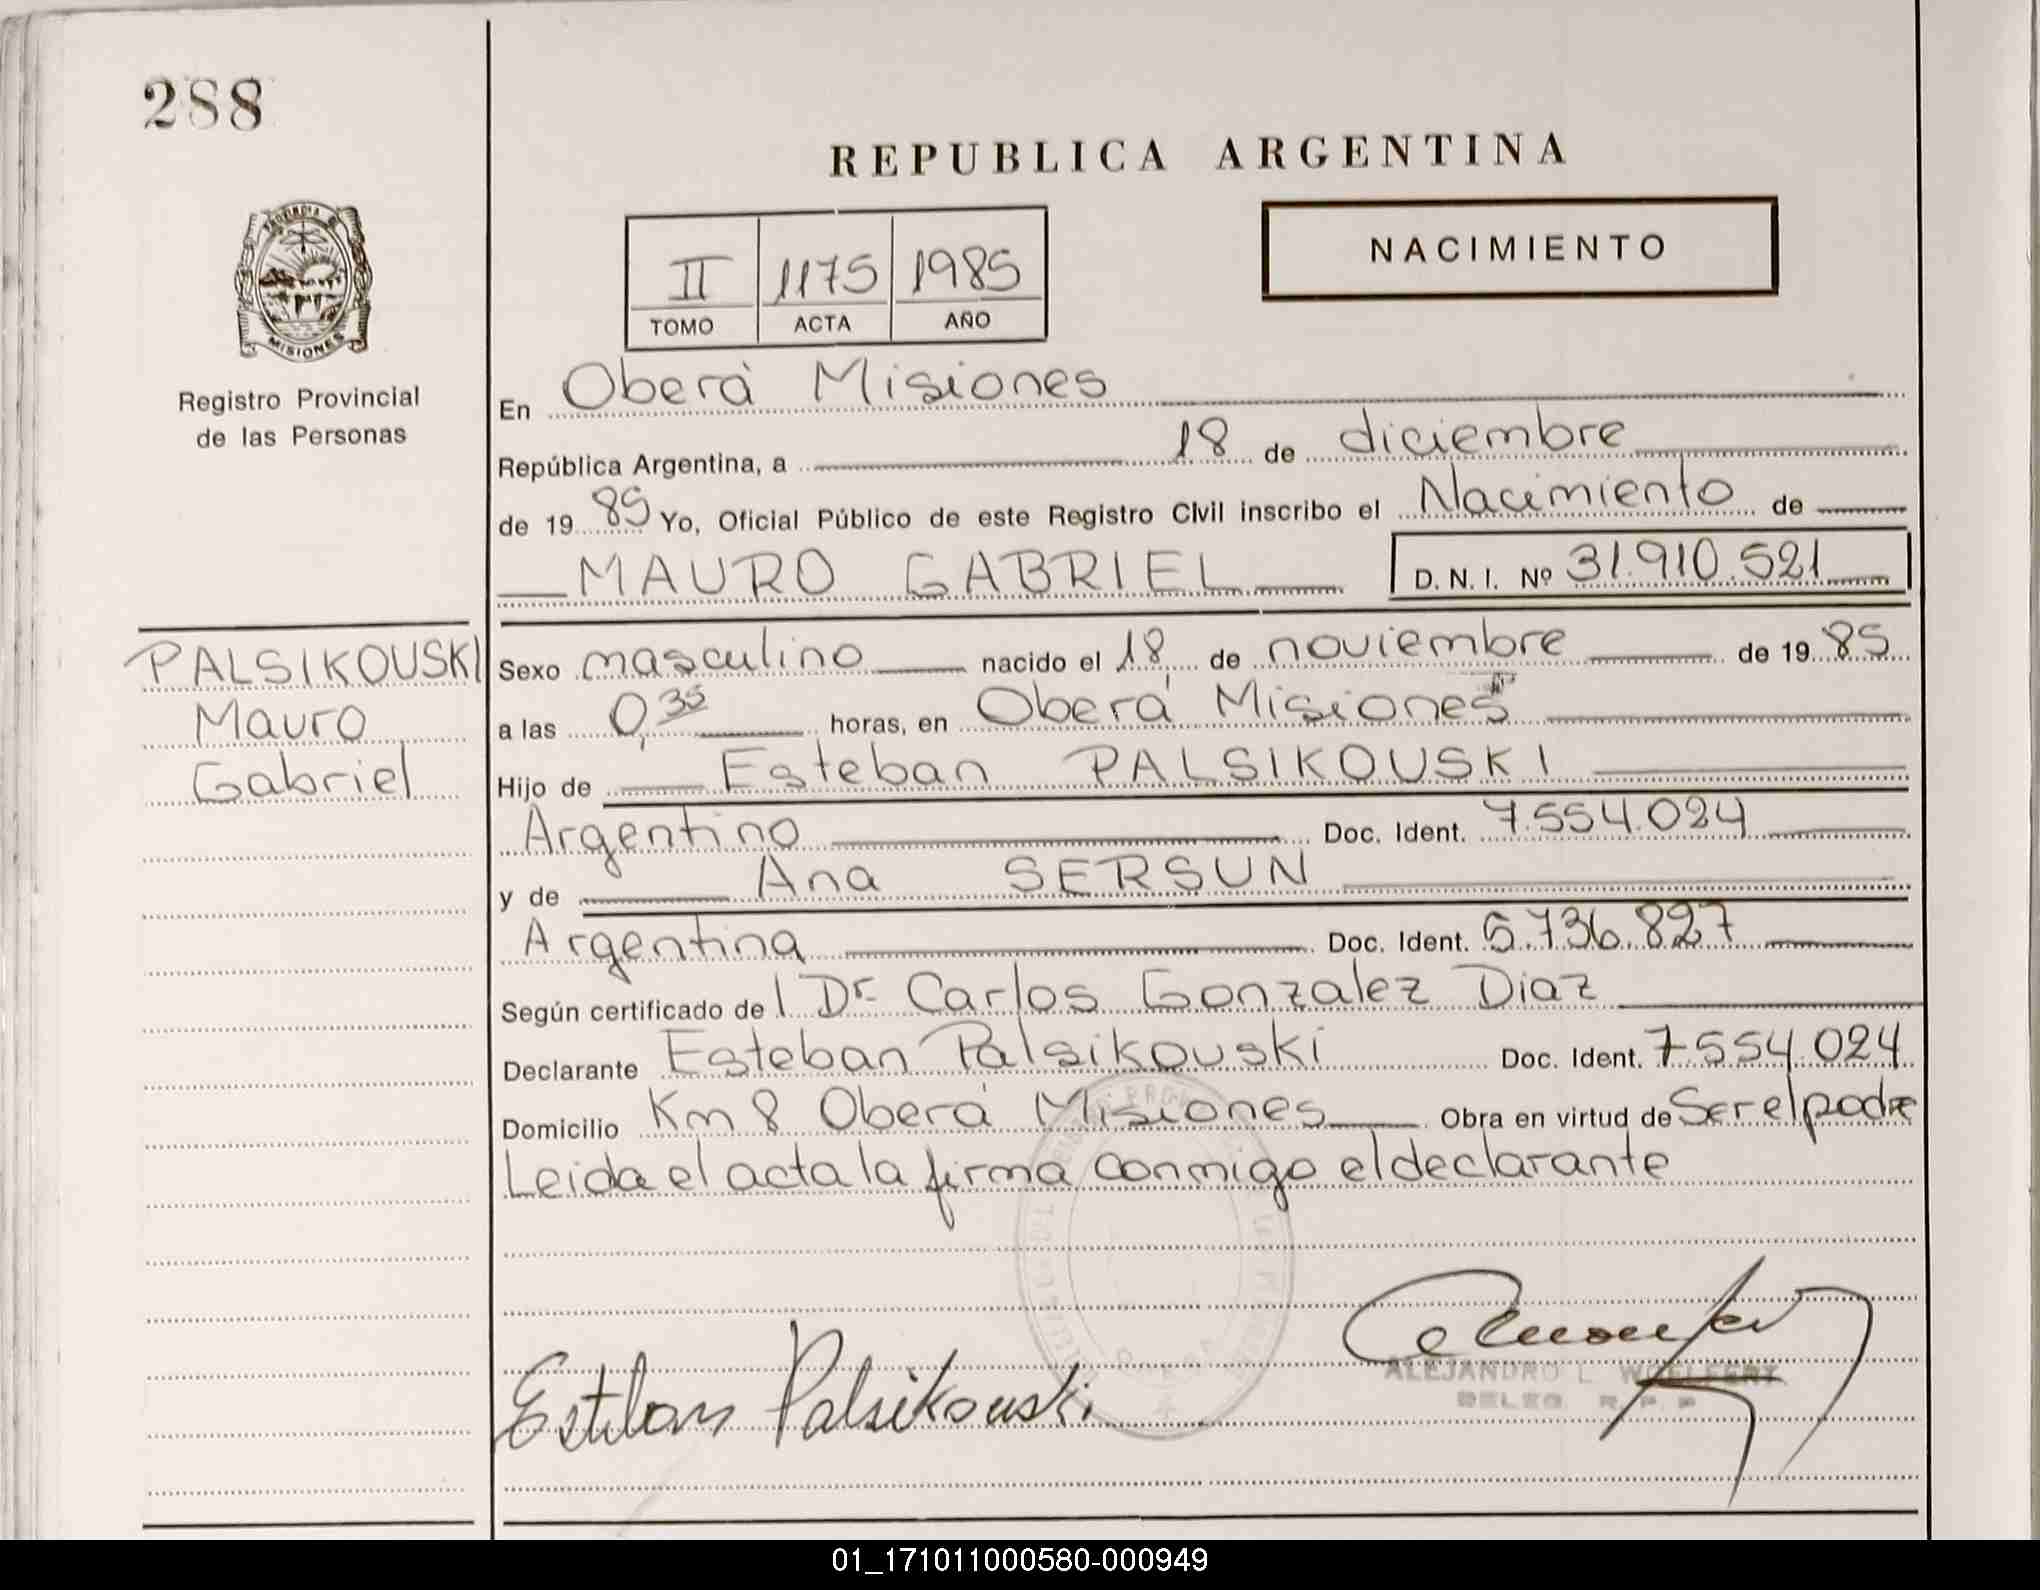 288
REPUBLICA ARGENTINA
PROVINCIA DE
MISIONES
Registro Provincial
de las Personas
II 1175 1985
TOMO ACTA AÑO
NACIMIENTO
En Oberá Misiones
República Argentina, a 18 de diciembre
de 1985 Yo, Oficial Público de este Registro Civil inscribo el Nacimiento de
MAURO GABRIEL D. N. I. Nº 31.910.521
PALSIKOUSKI
Mauro
Gabriel
Sexo masculino nacido el 18 de noviembre de 1985
a las 0,35 horas, en Oberá Misiones
Hijo de Esteban PALSIKOUSKI
Argentino Doc. Ident. 7.554.024
y de Ana SERSUN
Argentina Doc. Ident. 5.736.827
Según certificado de l Dr. Carlos Gonzalez Diaz
Declarante Esteban Palsikouski Doc. Ident. 7.554.024
Domicilio Km 8 Oberá Misiones Obra en virtud de Ser el padre
Leida el acta la firma conmigo el declarante
Esteban Palsikouski
ALEJANDRO L. WOELFERT
DELEG. R. P. P.
01_171011000580-000949